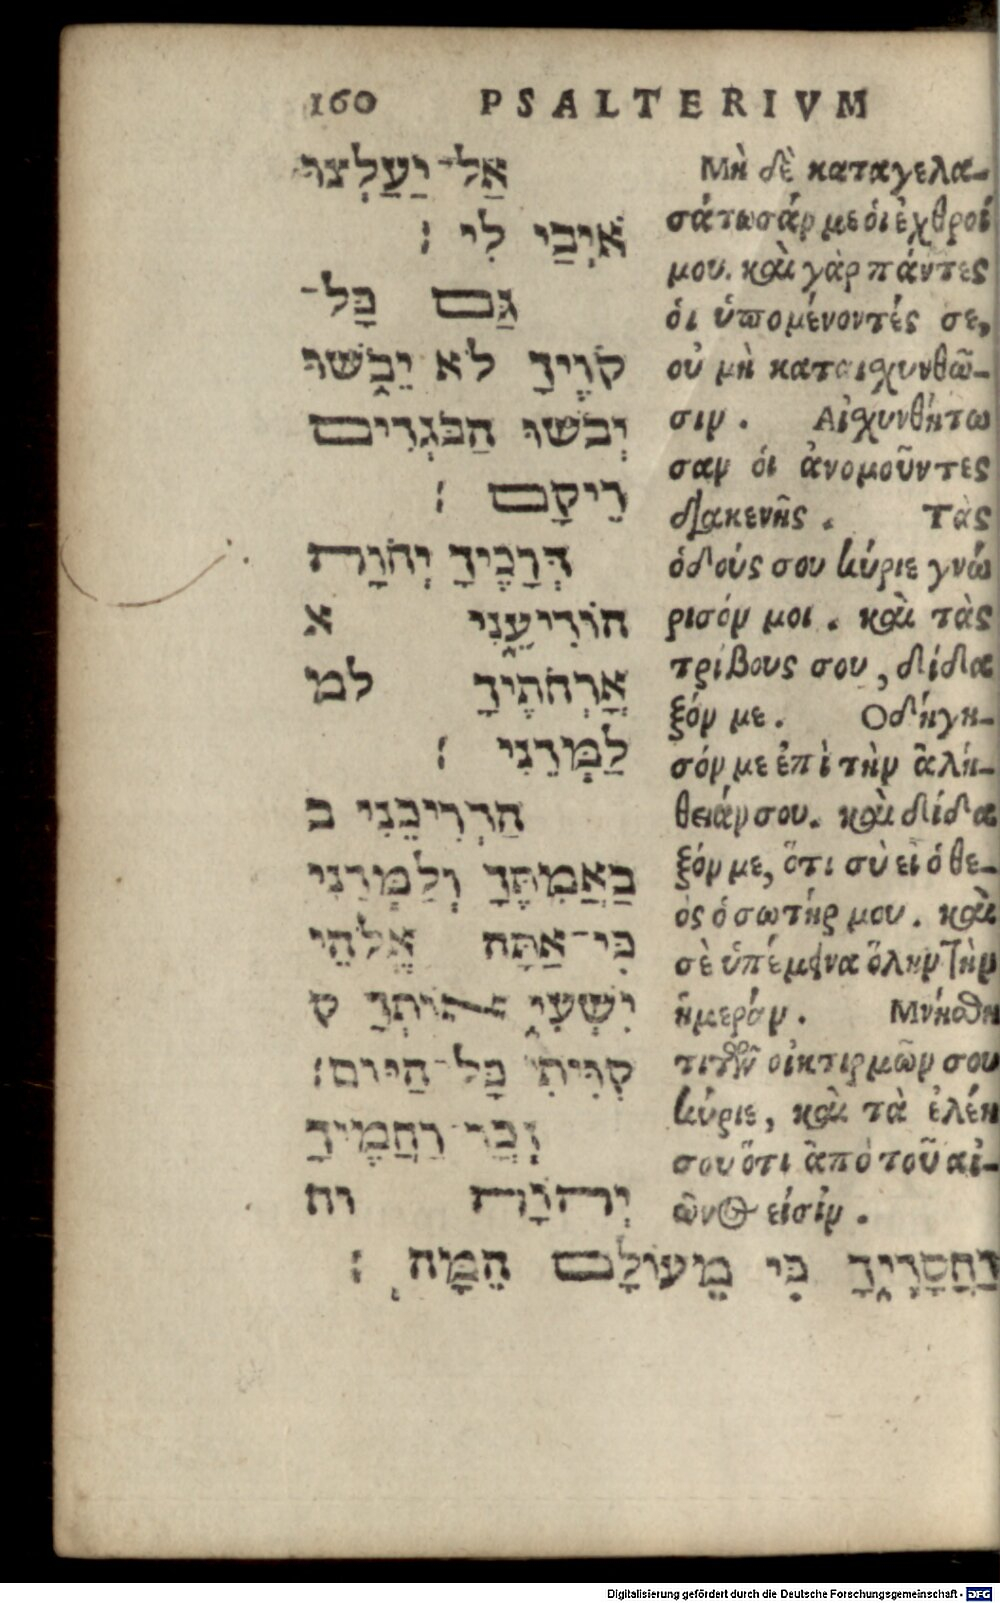 160 PSALTERIVM
אַל־יַעַלְצוּ
אֹיְבַי לִי :
גַּם כָּל־
קֹוֶיךָ לֹא יֵבֹשׁוּ
יְבֹשׁוּ הַבֹּגְדִים
רֵיקָם :
דְּרָכֶיךָ יְהֹוָה
הוֹדִיעֵנִי א
אֹרְחֹתֶיךָ למ
לַמְּדֵנִי :
הַדְרִיכֵנִי ב
בַאֲמִתֶּךָ וְלַמְּדֵנִי
כִּי־אַתָּה אֱלֹהֵי
יִשְׁעִי אוֹתְךָ ק
קִוִּיתִי כָּל־הַיּוֹם :
זְכֹר־רַחֲמֶיךָ
יְהוָֹה וח
וַחֲסָדֶיךָ כִּי מֵעוֹלָם הֵמָּה :
Μὴ δὲ καταγελα-
σάτωσάν με ὁι ἐχθροί
μου. καὶ γὰρ πάντες
ὁι ὑπομένοντές σε,
οὐ μὴ καταισχυνθῶ-
σιν. Αἰσχυνθήτω
σαν ὁι ἀνομοῦντες
διακενῆς. Τὰς
ὁδούς σου κύριε γνώ
ρισόν μοι. καὶ τὰς
τρίβους σου, δίδα
ξόν με. Οδήγη-
σόν με ἐπὶ τὴν ἀλή-
θειάν σου. καὶ δίδα
ξόν με, ὅτι σὺ εἶ ὁ θε-
ὸς ὁ σωτήρ μου. καὶ
σὲ ὑπέμεινα ὅλην τὴν
ἡμέραν. Μνήσθη
τι τῶν οἰκτιρμῶν σου
κύριε, καὶ τὰ ἐλέη
σου ὅτι ἀπὸ τοῦ αἰ-
ῶνος εἰσίν.
Digitalisierung gefördert durch die Deutsche Forschungsgemeinschaft - DFG